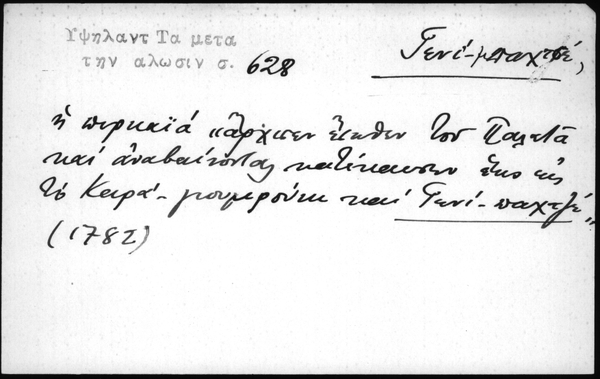 Υψηλαντ Τα μετα
την αλωσιν σ. 628
Γενί-μπαχτσέ,
ἡ πυρκαϊά „ἄρχισεν ἔκειθεν τοῦ Παλατᾶ
καί ἀναβαίνοντας κατέκαυσεν ἕως εἰς
τό Καρά-γουμρούκ καί Γενί-παχτζέ„
(1782)